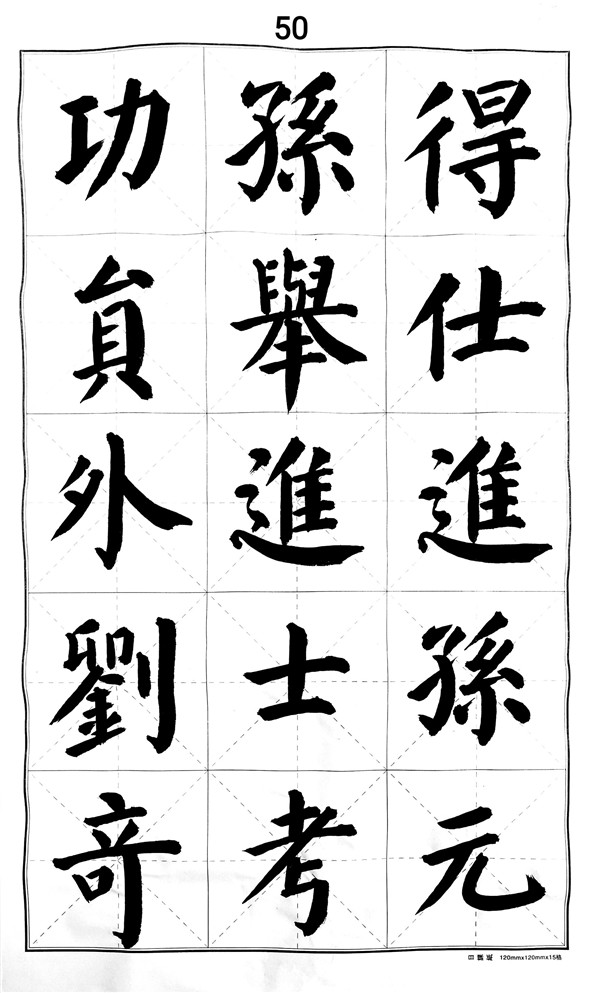 50
得仕進孫元
孫舉進士考
功貟外劉竒
120mmx120mmx15格